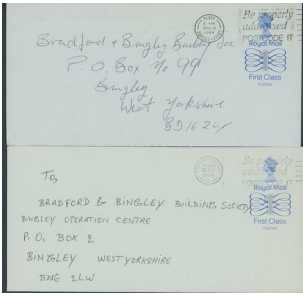 Be properly
addressed
POSTCODE IT
Royal Mail
First Class
Bradford & Bingley Building Soc
P.O. Box No 99
Bingley
West Yorkshire
BD16 2
Be properly
addressed
Royal Mail
First Class
To,
BRADFORD & BINGLEY BUILDING SOCIETY
BINGLEY OPERATION CENTRE
P.O. BOX 2
BINGLEY WEST YORKSHIRE
2LW